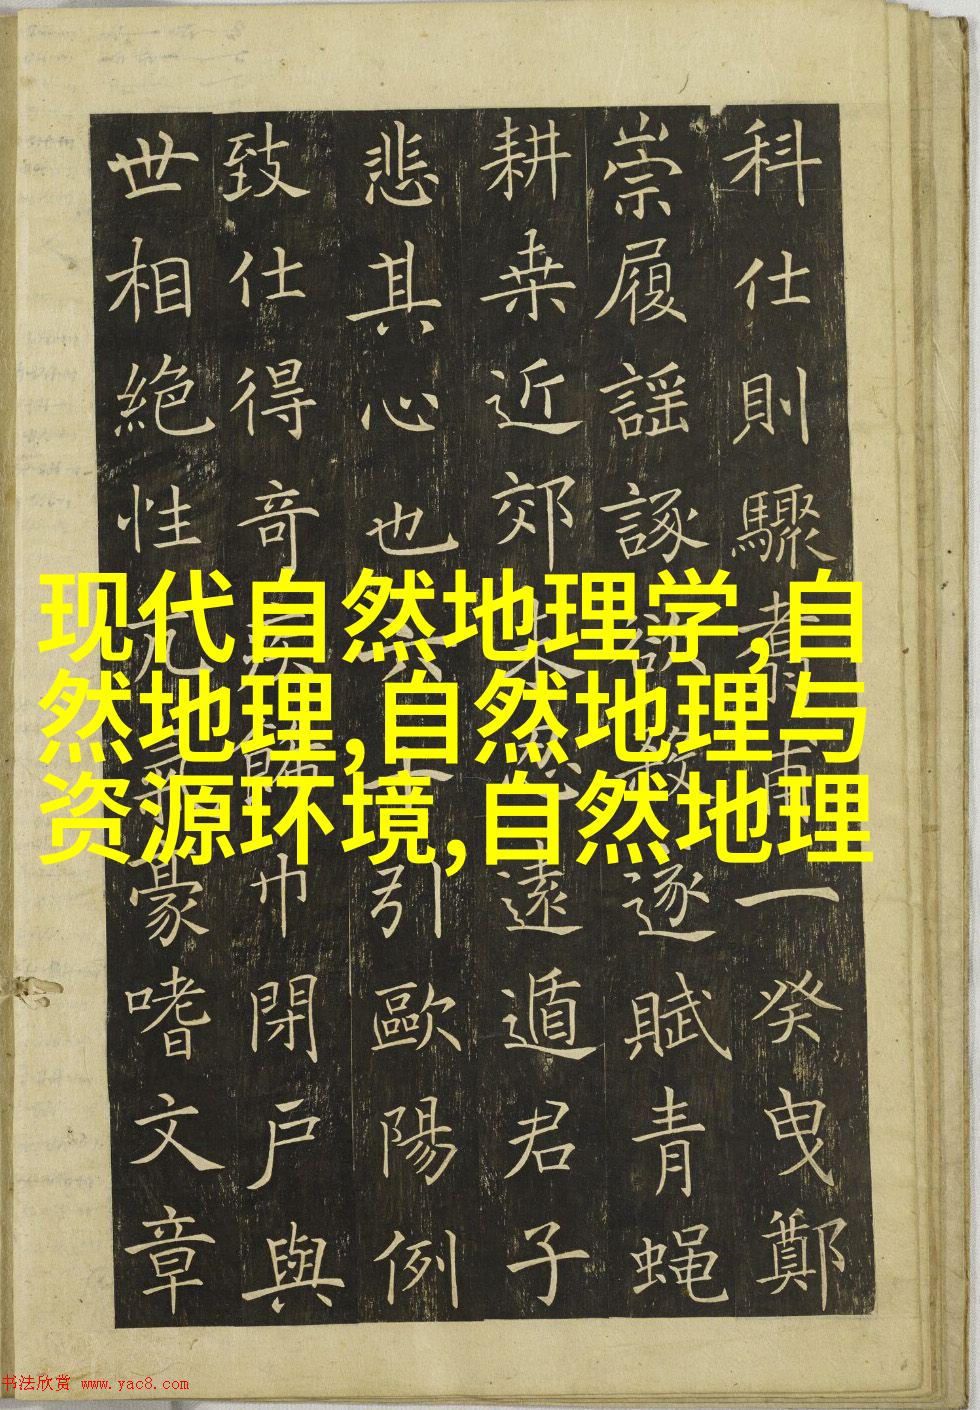 科仕則驟一癸曳鄭
崇履謡諑逐賦青蝿
耕桒近郊遠遁君子
悲其心也引歐陽例
致仕得奇巾閉戶與
世相絶性豪嗜文章
现代自然地理学,自
然地理,自然地理与
资源环境,自然地理
书法欣赏 www.yac8.com